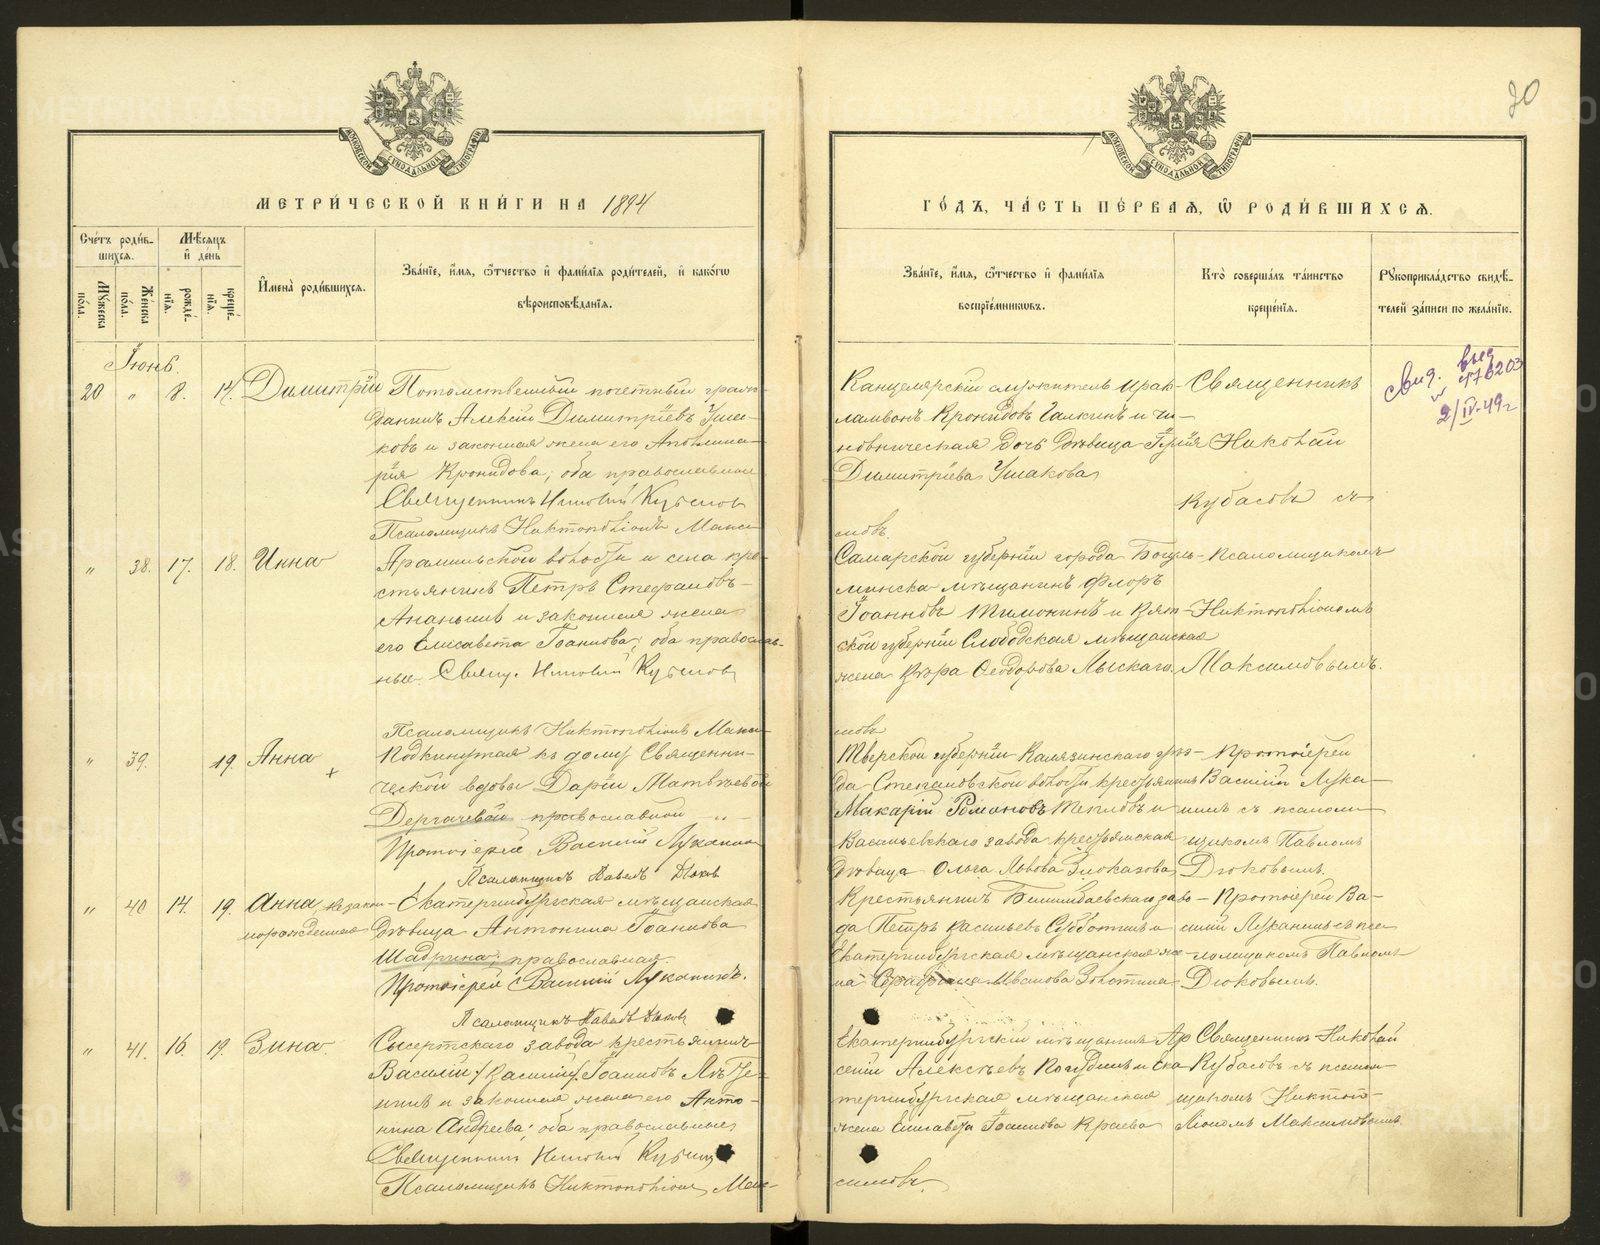 20
МЕТРИ́ЧЕСКОЙ КНИ́ГИ НА 1894
ГО́ДЪ, ЧА́СТЬ ПЕ́РВАЯ, Ѡ РОДИ́ВШИХСЯ.
Сче́тъ роди́в-
шихся.
Мѣ́сяцъ
и҆ де́нь
Мужеска по́ла.
Же́нска по́ла.
рожде́нїя.
креще́нїя.
И҆мена̀ роди́вшихся.
Зва́нїе, и҆́мя, ѻ҆́тчество и҆ фами́лїя роди́телей, и҆ како́гѡ
вѣроисповѣ́данїя.
Зва́нїе, и҆́мя, ѻ҆́тчество и҆ фами́лїя
воспрїе́мниковъ.
Кто̀ соверша́лъ та́инство
креще́нїя.
Рꙋкоприкла́дство свидѣ́-
телей за́писи по жела́нїю.
Іюнь.
20 " 8. 14. Димитрій
Потомственный почетный граж-
данинъ Алексѣй Димитріевъ Уша-
ковъ и законная жена его Апполина-
рія Кронидова, оба православные
Священникъ Николай Кубасовъ
Псаломщикъ Никтополіонъ Макси-
Канцелярскій служитель Ирак-
ламвонъ Кронидовъ Галкинъ и чи-
новническая дочь дѣвица Юлія
Димитріева Ушакова
симовъ.
Священникъ
Николай
Кубасовъ съ
псаломщикомъ
Никтополіономъ
Максимовымъ.
Свид. выд
2/IV-49г
" 38. 17. 18. Инна
Арамильской волости и села кре-
стьянинъ Петръ Стефановъ
Ананьинъ и законная жена
его Елисавета Іоаннова, оба православ-
ные. Свящ. Николай Кубасовъ
Псаломщикъ Никтополіонъ Макси-
Самарской губерніи города Бугуль-
минска мѣщанинъ Флоръ
Іоанновъ Тимонинъ и Вят-
ской губерніи Слободская мѣщанская
жена Вѣра Ѳеодорова Лыскаго.
симовъ
" 39. 19. Анна +
Подкинутая къ дому Священни-
ческой вдовы Даріи Матвѣевой
Дергачевой православной
Протоіерей Василій Луканинъ
Псаломщикъ Павелъ Дюковъ
Тверской губерніи Калязинскаго уѣз-
да Степановской волости крестьянинъ
Макарій Романовъ Тепловъ и
Васильевскаго завода крестьянская
дѣвица Ольга Львова Злоказова
Протоіерей
Василій Лука-
нинъ съ псалом-
щикомъ Павломъ
Дюковымъ.
" 40 14. 19. Анна, незакон-
норожденная
Екатеринбургская мѣщанская
дѣвица Антонина Іоаннова
Шадрина, православная.
Протоіерей Василій Луканинъ.
Псаломщикъ Павелъ Дюковъ
Крестьянинъ Билимбаевскаго заво-
да Петръ Васильевъ Субботинъ и
Екатеринбургская мѣщанская же-
на Серафима Иванова Золотина
Протоіерей Ва-
силій Луканинъ съ пса-
ломщикомъ Павломъ
Дюковымъ.
" 41. 16. 19. Зина.
Сысертскаго завода крестьянинъ
Василій / Василій / Іоанновъ Лѣ
нинъ и законная жена его Анто-
нина Андреева, оба православные,
Священникъ Николай Кубасовъ
Псаломщикъ Никтополіонъ Мак-
Екатеринбургскій мѣщанинъ Ар-
сеній Алексѣевъ Погудинъ и Ека-
теринбургская мѣщанская
жена Елисавета Іоаннова Краева
симовъ.
Священникъ Николай
Кубасовъ съ псалом-
щикомъ Никтопо-
ліономъ Максимовымъ.